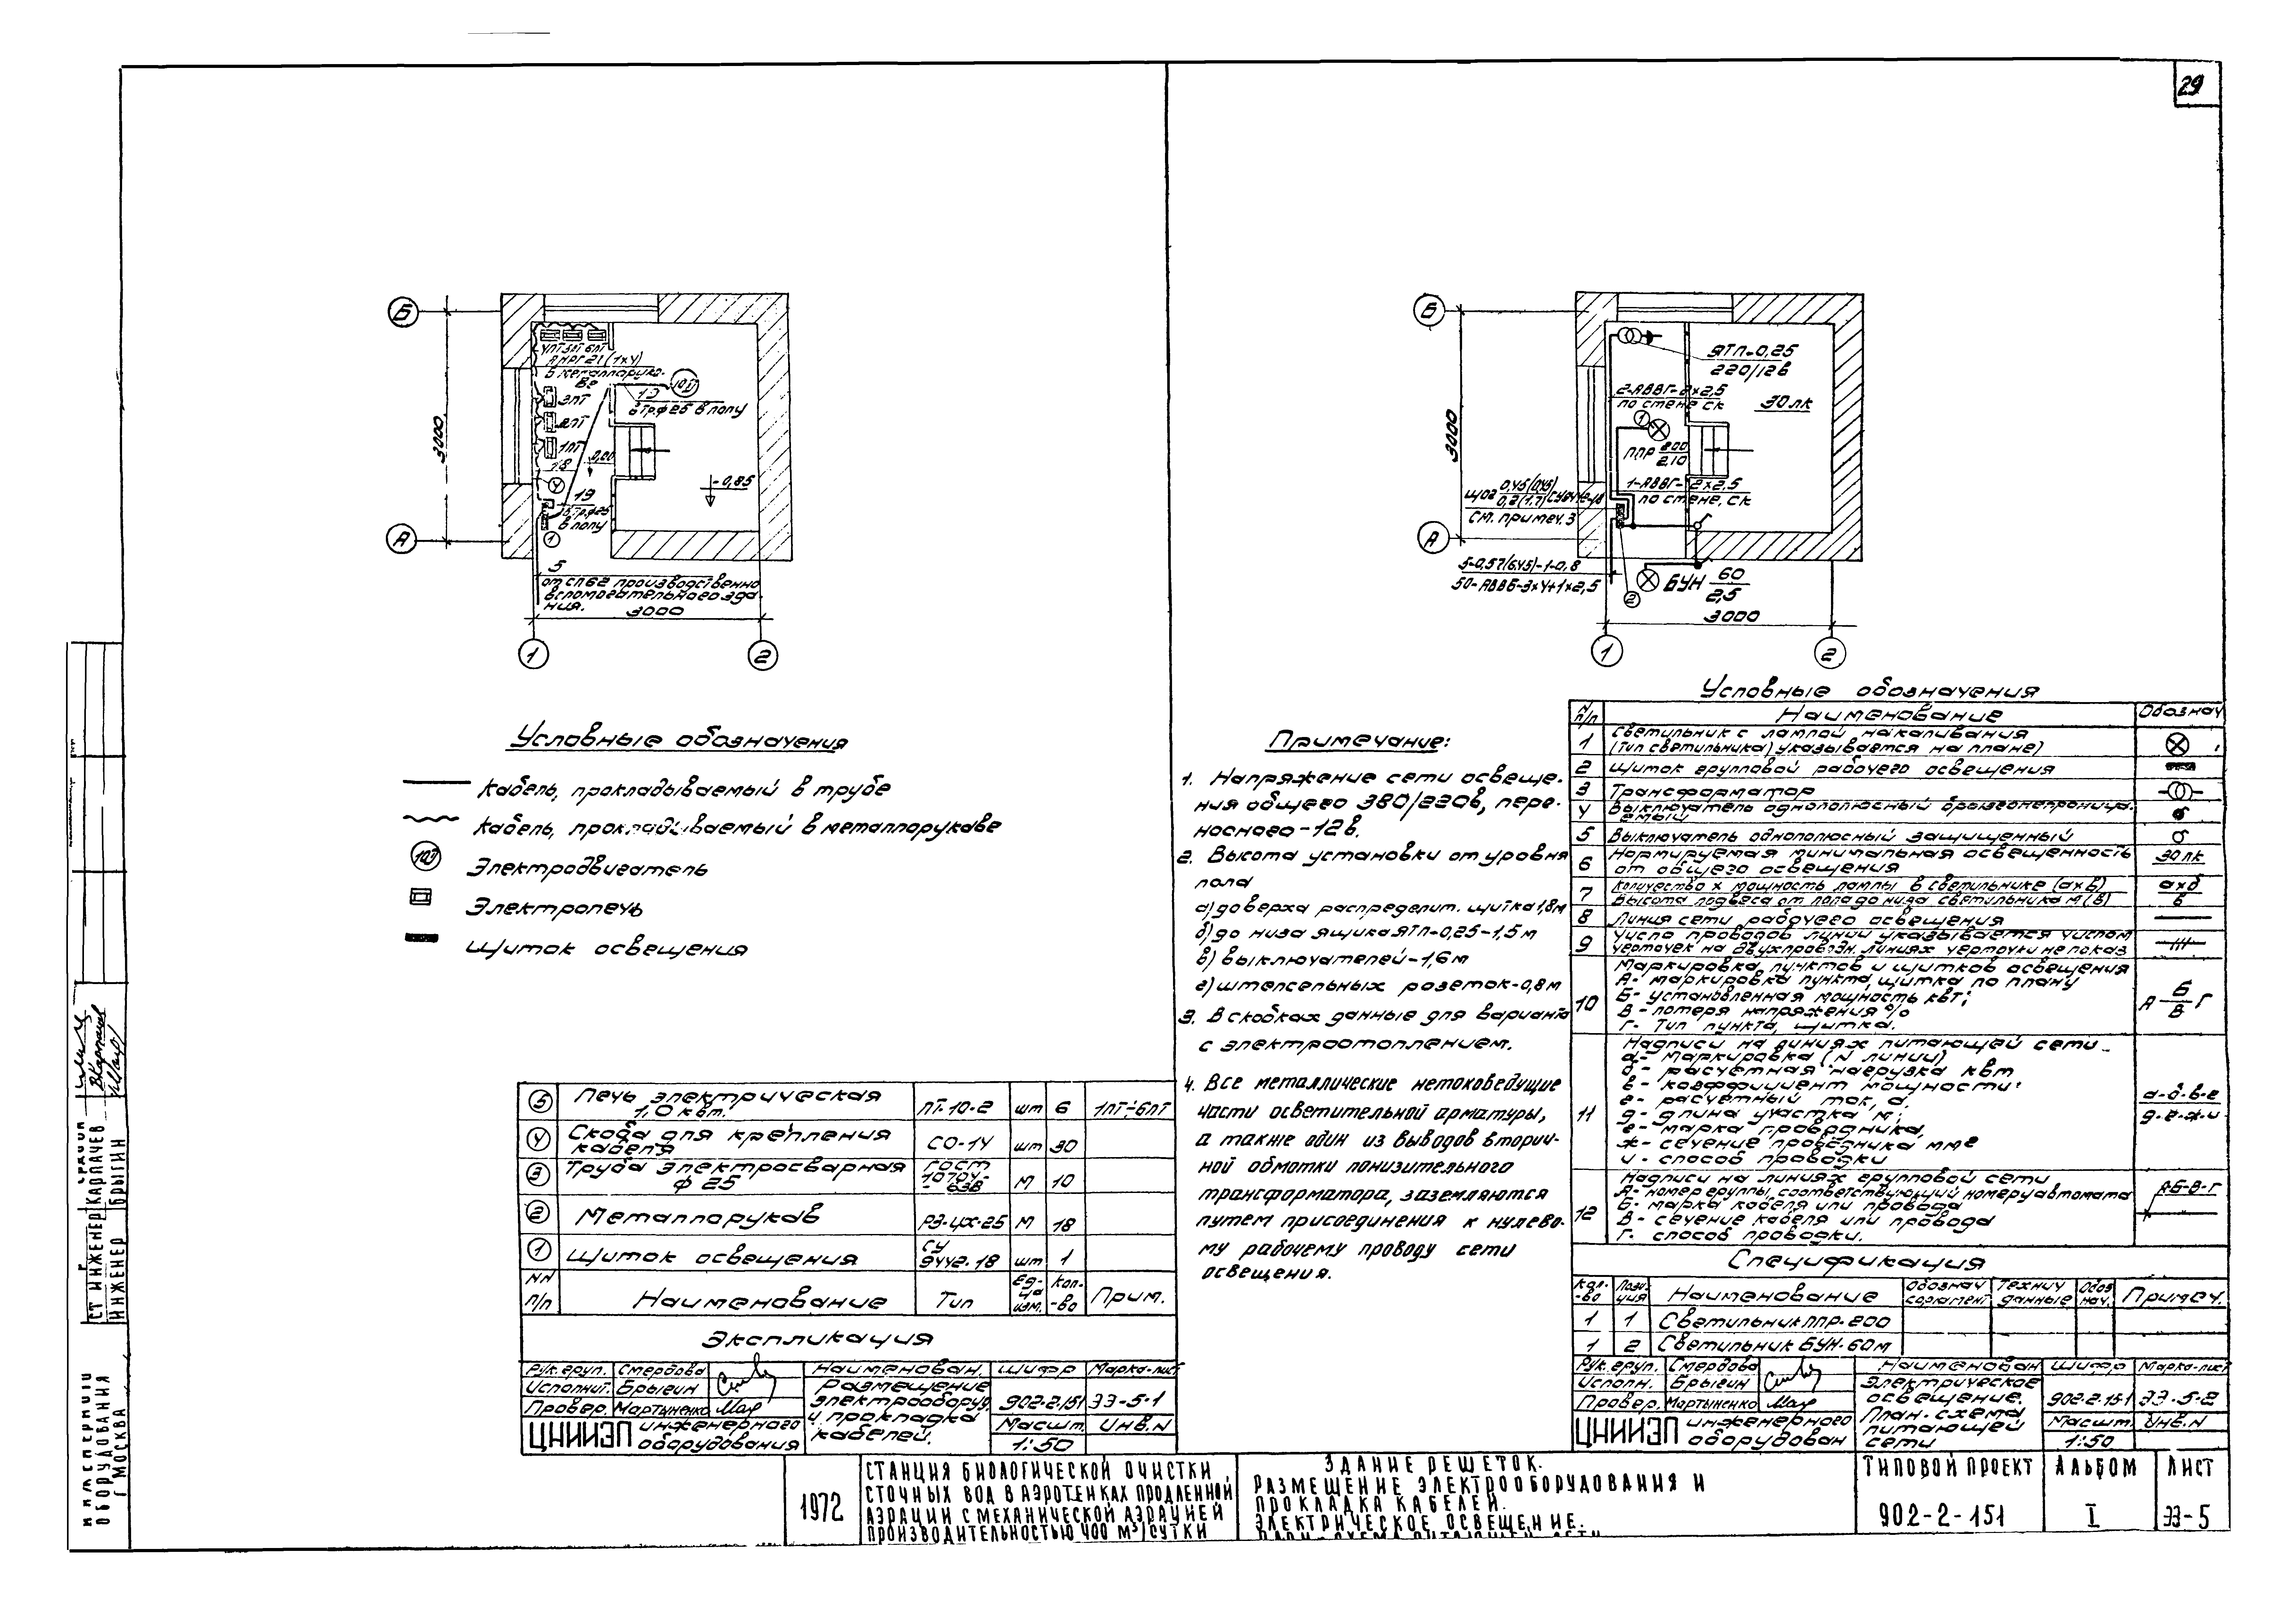 29
Б
А
3000
АНРГ 21 (1×4)
в металлорука-
ве
3ПТ
2ПТ
1ПТ
18
0,00
1Э
в тр. ф 25 в полу
-0,85
4
1Э
в полу
1
5
от СП62 производственно
вспомогательного зда
ния.
3000
1
2
Условные обозначения
Кабель, прокладываемый в трубе
Кабель, прокладываемый в металлорукаве
Электродвигатель
Электропечь
Щиток освещения
5 Печь электрическая 1,0 квт. ПТ-10-2 шт 6 1ПТ÷6ПТ
4 Скоба для крепления кабеля СО-14 шт 30
3 Труба электросварная ф 25 ГОСТ 10704-63В М 10
2 Металлорукав РЗ-ЦХ-25 М 18
1 Щиток освещения СУ 9442-18 шт 1
NN п/п Наименование Тип Ед-ца изм. Кол-во Прим.
Экспликация
Рук. груп. Смердова Наименован. Шифр Марка-лист
Исполнит. Брыгин Размещение
электрооборуд. 902-2-151 ЭЭ-5-1
Провер. Мартыненко и прокладка
кабелей. Масшт. Инв.N
ЦНИИЭП инженерного
оборудования 1:50
Б
А
3000
ЯТП-0,25
220/12в
2-АВВГ-2×2,5
по стене СК
30лк
1
ППР 200
2,10
1-АВВГ-2×2,5
по стене, СК
ЩО2 0,45(0,45)
0,2(1,7) СУ9442-18
См. примеч. 3
5-0,57(6,45)-1-0,8
50-АВВБ-3×4+1×2,5
2
БУН 60
2,5
3000
1
2
Примечание:
1. Напряжение сети освеще-
ния общего 380/220в, пере-
носного-12в.
2. Высота установки от уровня
пола
а) до верха распределит. щитка 1,8м
б) до низа ящика ЯТП-0,25-1,5м
в) выключателей-1,6м
г) штепсельных розеток-0,8м
3. В скобках данные для варианта
с электроотоплением.
4. Все металлические нетоковедущие
части осветительной арматуры,
а также один из выводов вторич-
ной обмотки понизительного
трансформатора, заземляются
путем присоединения к нулево-
му рабочему проводу сети
освещения.
Условные обозначения
N п/п Наименование Обознач
1 Светильник с лампой накаливания
(Тип светильника) указывается на плане)
2 Щиток групповой рабочего освещения
3 Трансформатор
4 Выключатель однополюсный брызгонепроница-
емый
5 Выключатель однополюсный защищенный
6 Нормируемая минимальная освещенность
от общего освещения 30лк
7 Количество х мощность лампы в светильнике (ахб)
Высота подвеса от пола до низа светильника м (в) ахб
в
8 Линия сети рабочего освещения
9 Число проводов линии указывается числом
черточек на двухпроводн. линиях черточки не показ
10 Маркировка пунктов и щитков освещения
А- маркировка пункта, щитка по плану
Б- установленная мощность квт;
В- потеря напряжения %
Г- Тип пункта, щитка.
А Б
В Г
11 Надписи на линиях питающей сети
а- маркировка (N линии)
б- расчетная нагрузка квт
в- коэффициент мощности
г- расчетный ток, а.
д- длина участка м;
е- марка проводника,
ж- сечение проводника мм2
и- способ проводки
а-б-в-г
д-е-ж-и
12 Надписи на линиях групповой сети
А- номер группы, соответствующий номеру автомата
Б- марка кабеля или провода
В- сечение кабеля или провода
Г- способ проводки.
А-Б-В-Г
Спецификация
Кол-во Пози-ция Наименование Обознач сортамент Технич данные Обоз нач. Примеч.
1 1 Светильник ППР-200
1 2 Светильник БУН-60м
Рук. груп. Смердова Наименован Шифр Марка-лист
Исполн. Брыгин Электрическое
освещение. 902-2-151 ЭЭ-5-2
Провер. Мартыненко План-схема
питающей
сети Масшт. Инв.N
ЦНИИЭП инженерного
оборудован 1:50
1972
СТАНЦИЯ БИОЛОГИЧЕСКОЙ ОЧИСТКИ
СТОЧНЫХ ВОД В АЭРОТЕНКАХ ПРОДЛЕННОЙ
АЭРАЦИИ С МЕХАНИЧЕСКОЙ АЭРАЦИЕЙ
ПРОИЗВОДИТЕЛЬНОСТЬЮ 400 М³/СУТКИ
ЗДАНИЕ РЕШЕТОК.
РАЗМЕЩЕНИЕ ЭЛЕКТРООБОРУДОВАНИЯ И
ПРОКЛАДКА КАБЕЛЕЙ.
ЭЛЕКТРИЧЕСКОЕ ОСВЕЩЕНИЕ.
ТИПОВОЙ ПРОЕКТ
902-2-151
АЛЬБОМ
I
ЛИСТ
ЭЭ-5
СТ ИНЖЕНЕР КАРПАЧЕВ
ИНЖЕНЕР БРЫГИН
ОБОРУДОВАНИЯ
Г МОСКВА